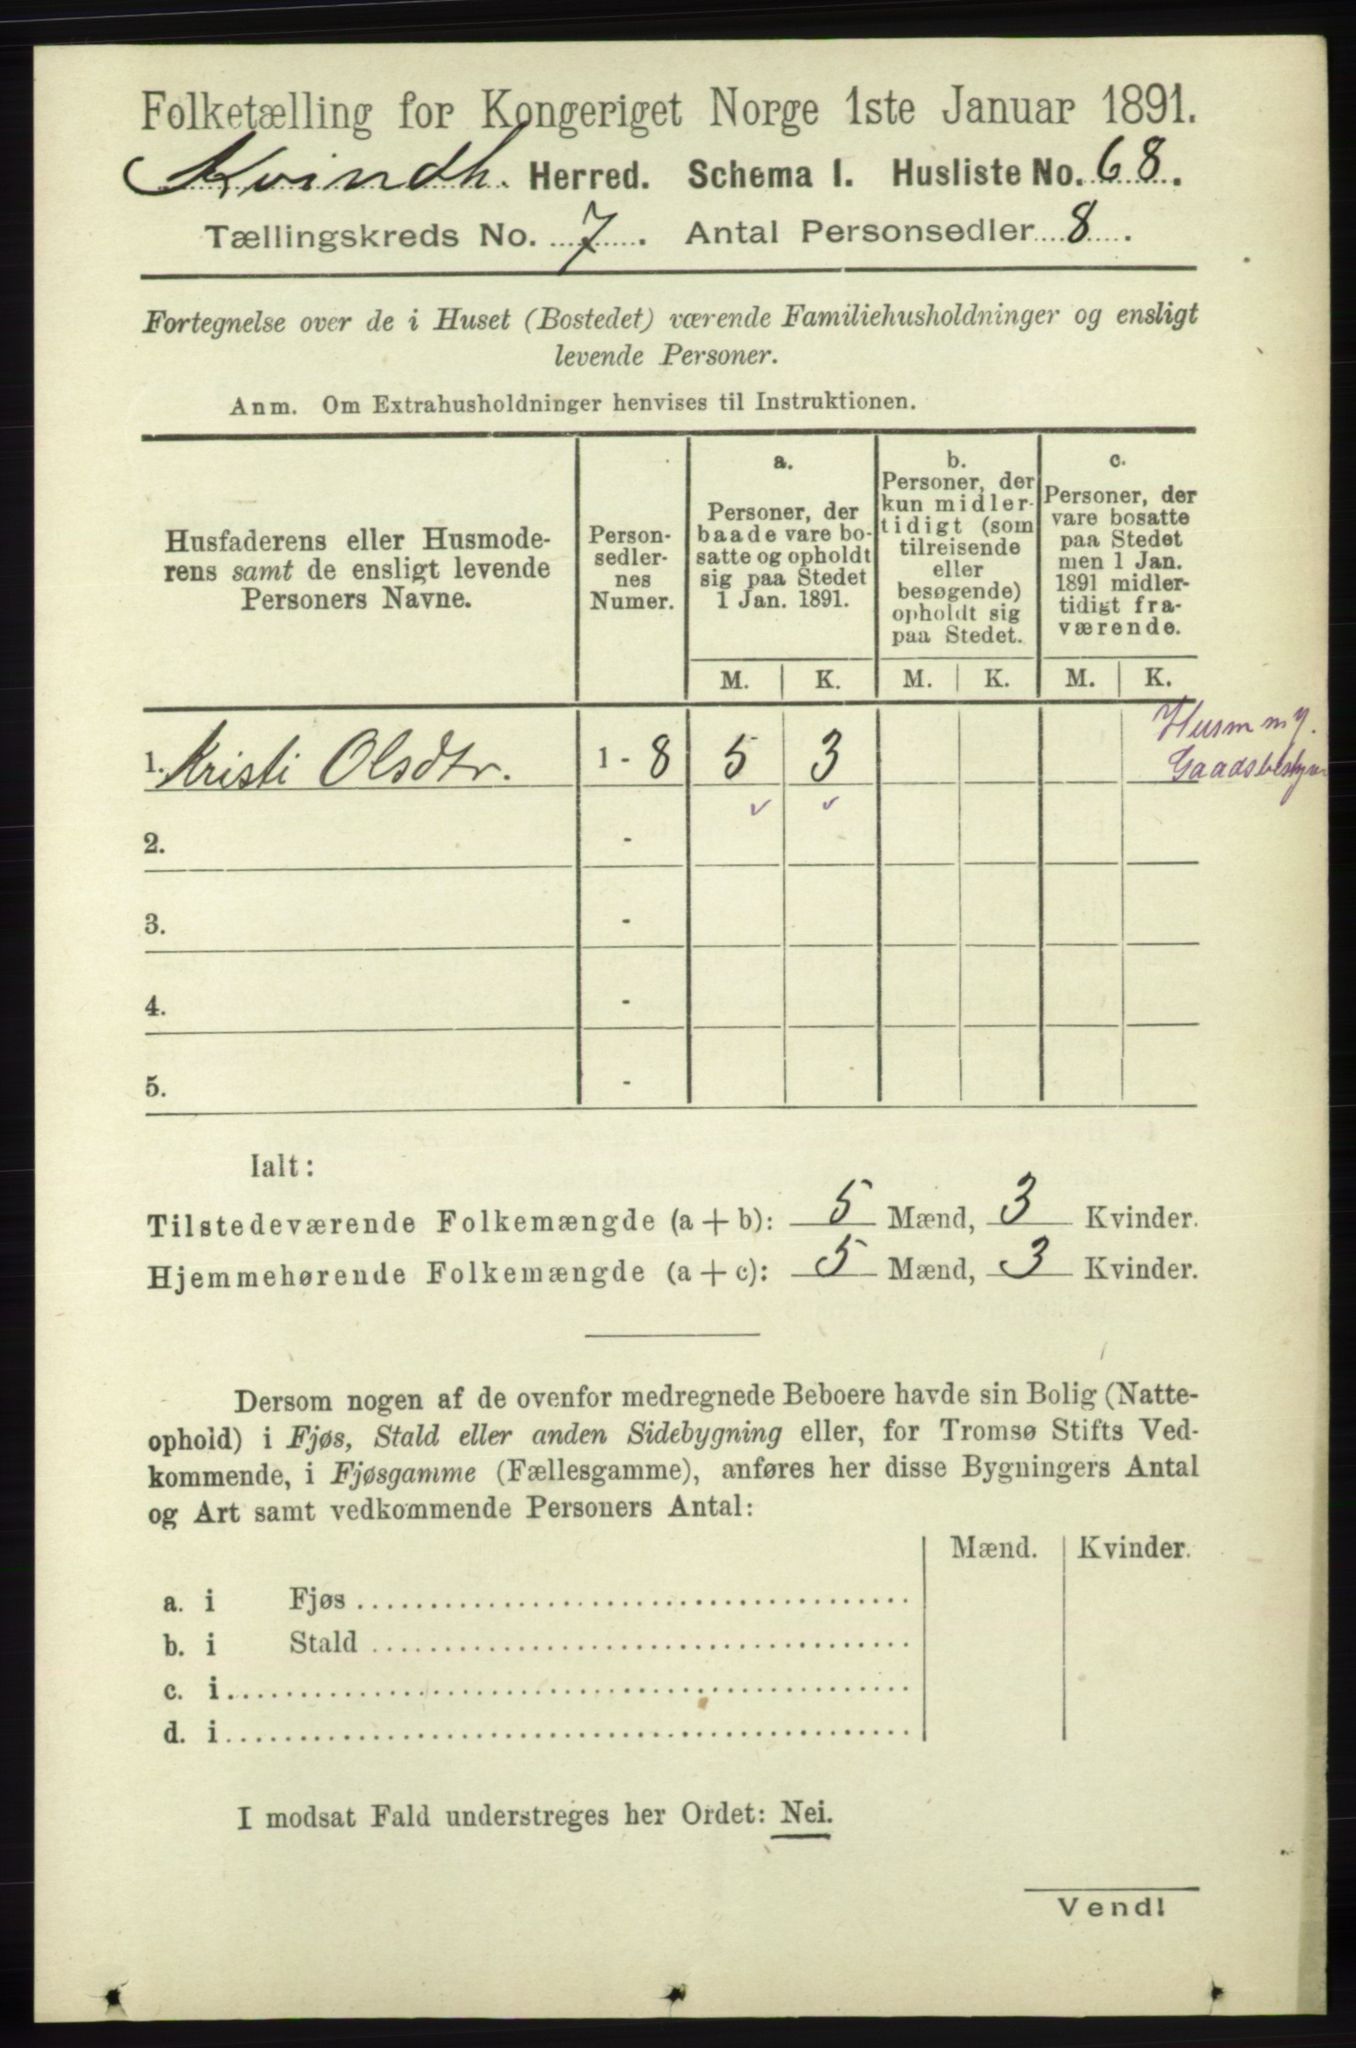 Folketælling for Kongeriget Norge 1ste Januar 1891.
Kvindh. Herred. Schema I. Husliste No. 68.
Tællingskreds No. 7. Antal Personsedler 8.
Fortegnelse over de i Huset (Bostedet) værende Familiehusholdninger og ensligt
levende Personer.
Anm. Om Extrahusholdninger henvises til Instruktionen.
Husfaderens eller Husmode-
rens samt de ensligt levende
Personers Navne.
Person-
sedler-
nes
Numer.
a.
Personer, der
baade vare bo-
satte og opholdt
sig paa Stedet
1 Jan. 1891.
b.
Personer, der
kun midler-
tidigt (som
tilreisende
eller
besøgende)
opholdt sig
paa Stedet.
c.
Personer, der
vare bosatte
paa Stedet
men 1 Jan.
1891 midler-
tidigt fra-
værende.
M. K. M. K. M. K.
Husm m J.
1. Kristi Olsdtr. 1 - 8 5 3 Gaadsbestyrer
2. -
3. -
4. -
5. -
Ialt:
Tilstedeværende Folkemængde (a + b): 5 Mænd, 3 Kvinder.
Hjemmehørende Folkemængde (a + c): 5 Mænd, 3 Kvinder.
Dersom nogen af de ovenfor medregnede Beboere havde sin Bolig (Natte-
ophold) i Fjøs, Stald eller anden Sidebygning eller, for Tromsø Stifts Ved-
kommende, i Fjøsgamme (Fællesgamme), anføres her disse Bygningers Antal
og Art samt vedkommende Personers Antal:
Mænd. Kvinder.
a. i Fjøs
b. i Stald
c. i
d. i
I modsat Fald understreges her Ordet: Nei.
Vend!